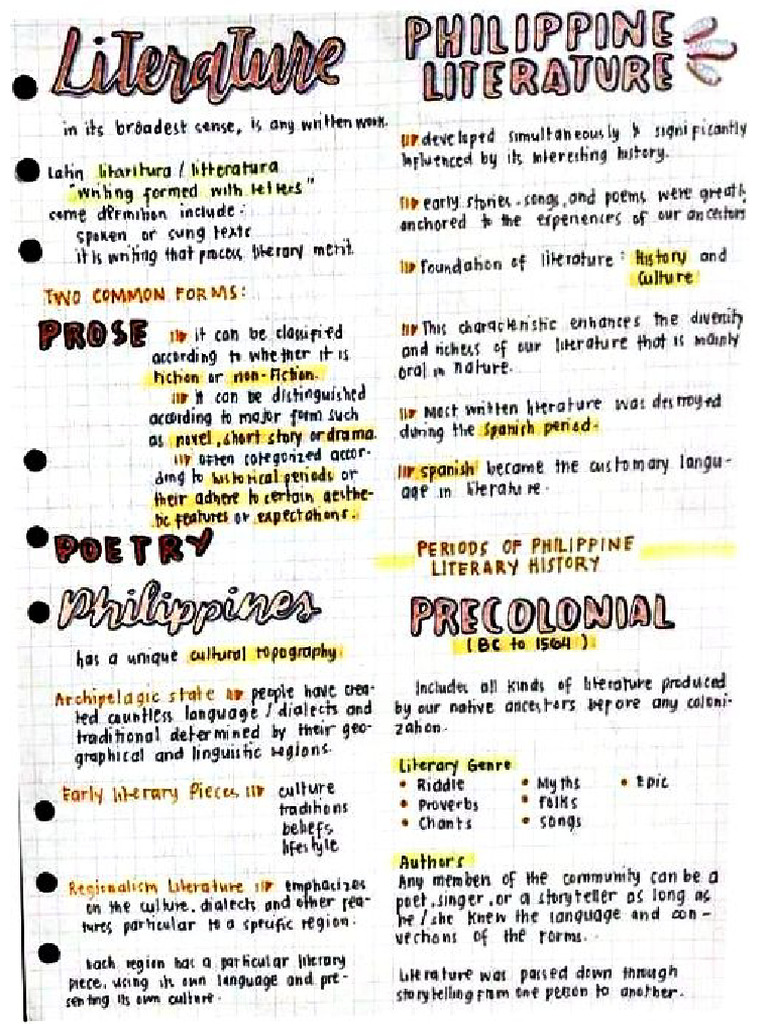 Literature
in its broadest sense, is any written work.
Latin litaritura / litteratura
"writing formed with letters"
some definition include:
spoken or sung texts
it is writing that process literary merit.
TWO COMMON FORMS:
PROSE it can be classified
according to whether it is
fiction or non-fiction.
it can be distinguished
according to major form such
as novel, short story or drama.
often categorized accor-
ding to historical periods or
their adhere to certain aesthe-
tic features or expectations.
POETRY
Philippines
has a unique cultural topography.
Archipelagic state people have crea-
ted countless language / dialects and
traditional determined by their geo-
graphical and linguistic regions.
Early literary Pieces culture
traditions
beliefs
lifestyle
Regionalism Literature emphasizes
on the culture, dialects and other fea-
tures particular to a specific region.
Each region has a particular literary
piece, using its own language and pre-
senting its own culture.
PHILIPPINE
LITERATURE
developed simultaneously & significantly
influenced by its interesting history.
early stories, songs, and poems were greatly
anchored to the experiences of our ancestors
Foundation of literature: History and
Culture
This characteristic enhances the diversity
and riches of our literature that is mainly
oral in nature.
Most written literature was destroyed
during the Spanish period.
Spanish became the customary langu-
age in literature.
PERIODS OF PHILIPPINE
LITERARY HISTORY
PRECOLONIAL
(BC to 1564)
Includes all kinds of literature produced
by our native ancestors before any coloni-
zation.
Literary Genre
• Riddle • Myths • Epic
• Proverbs • Folks
• Chants • songs
Authors
Any members of the community can be a
poet, singer, or a storyteller as long as
he / she knew the language and con-
ventions of the forms.
Literature was passed down through
storytelling from one person to another.